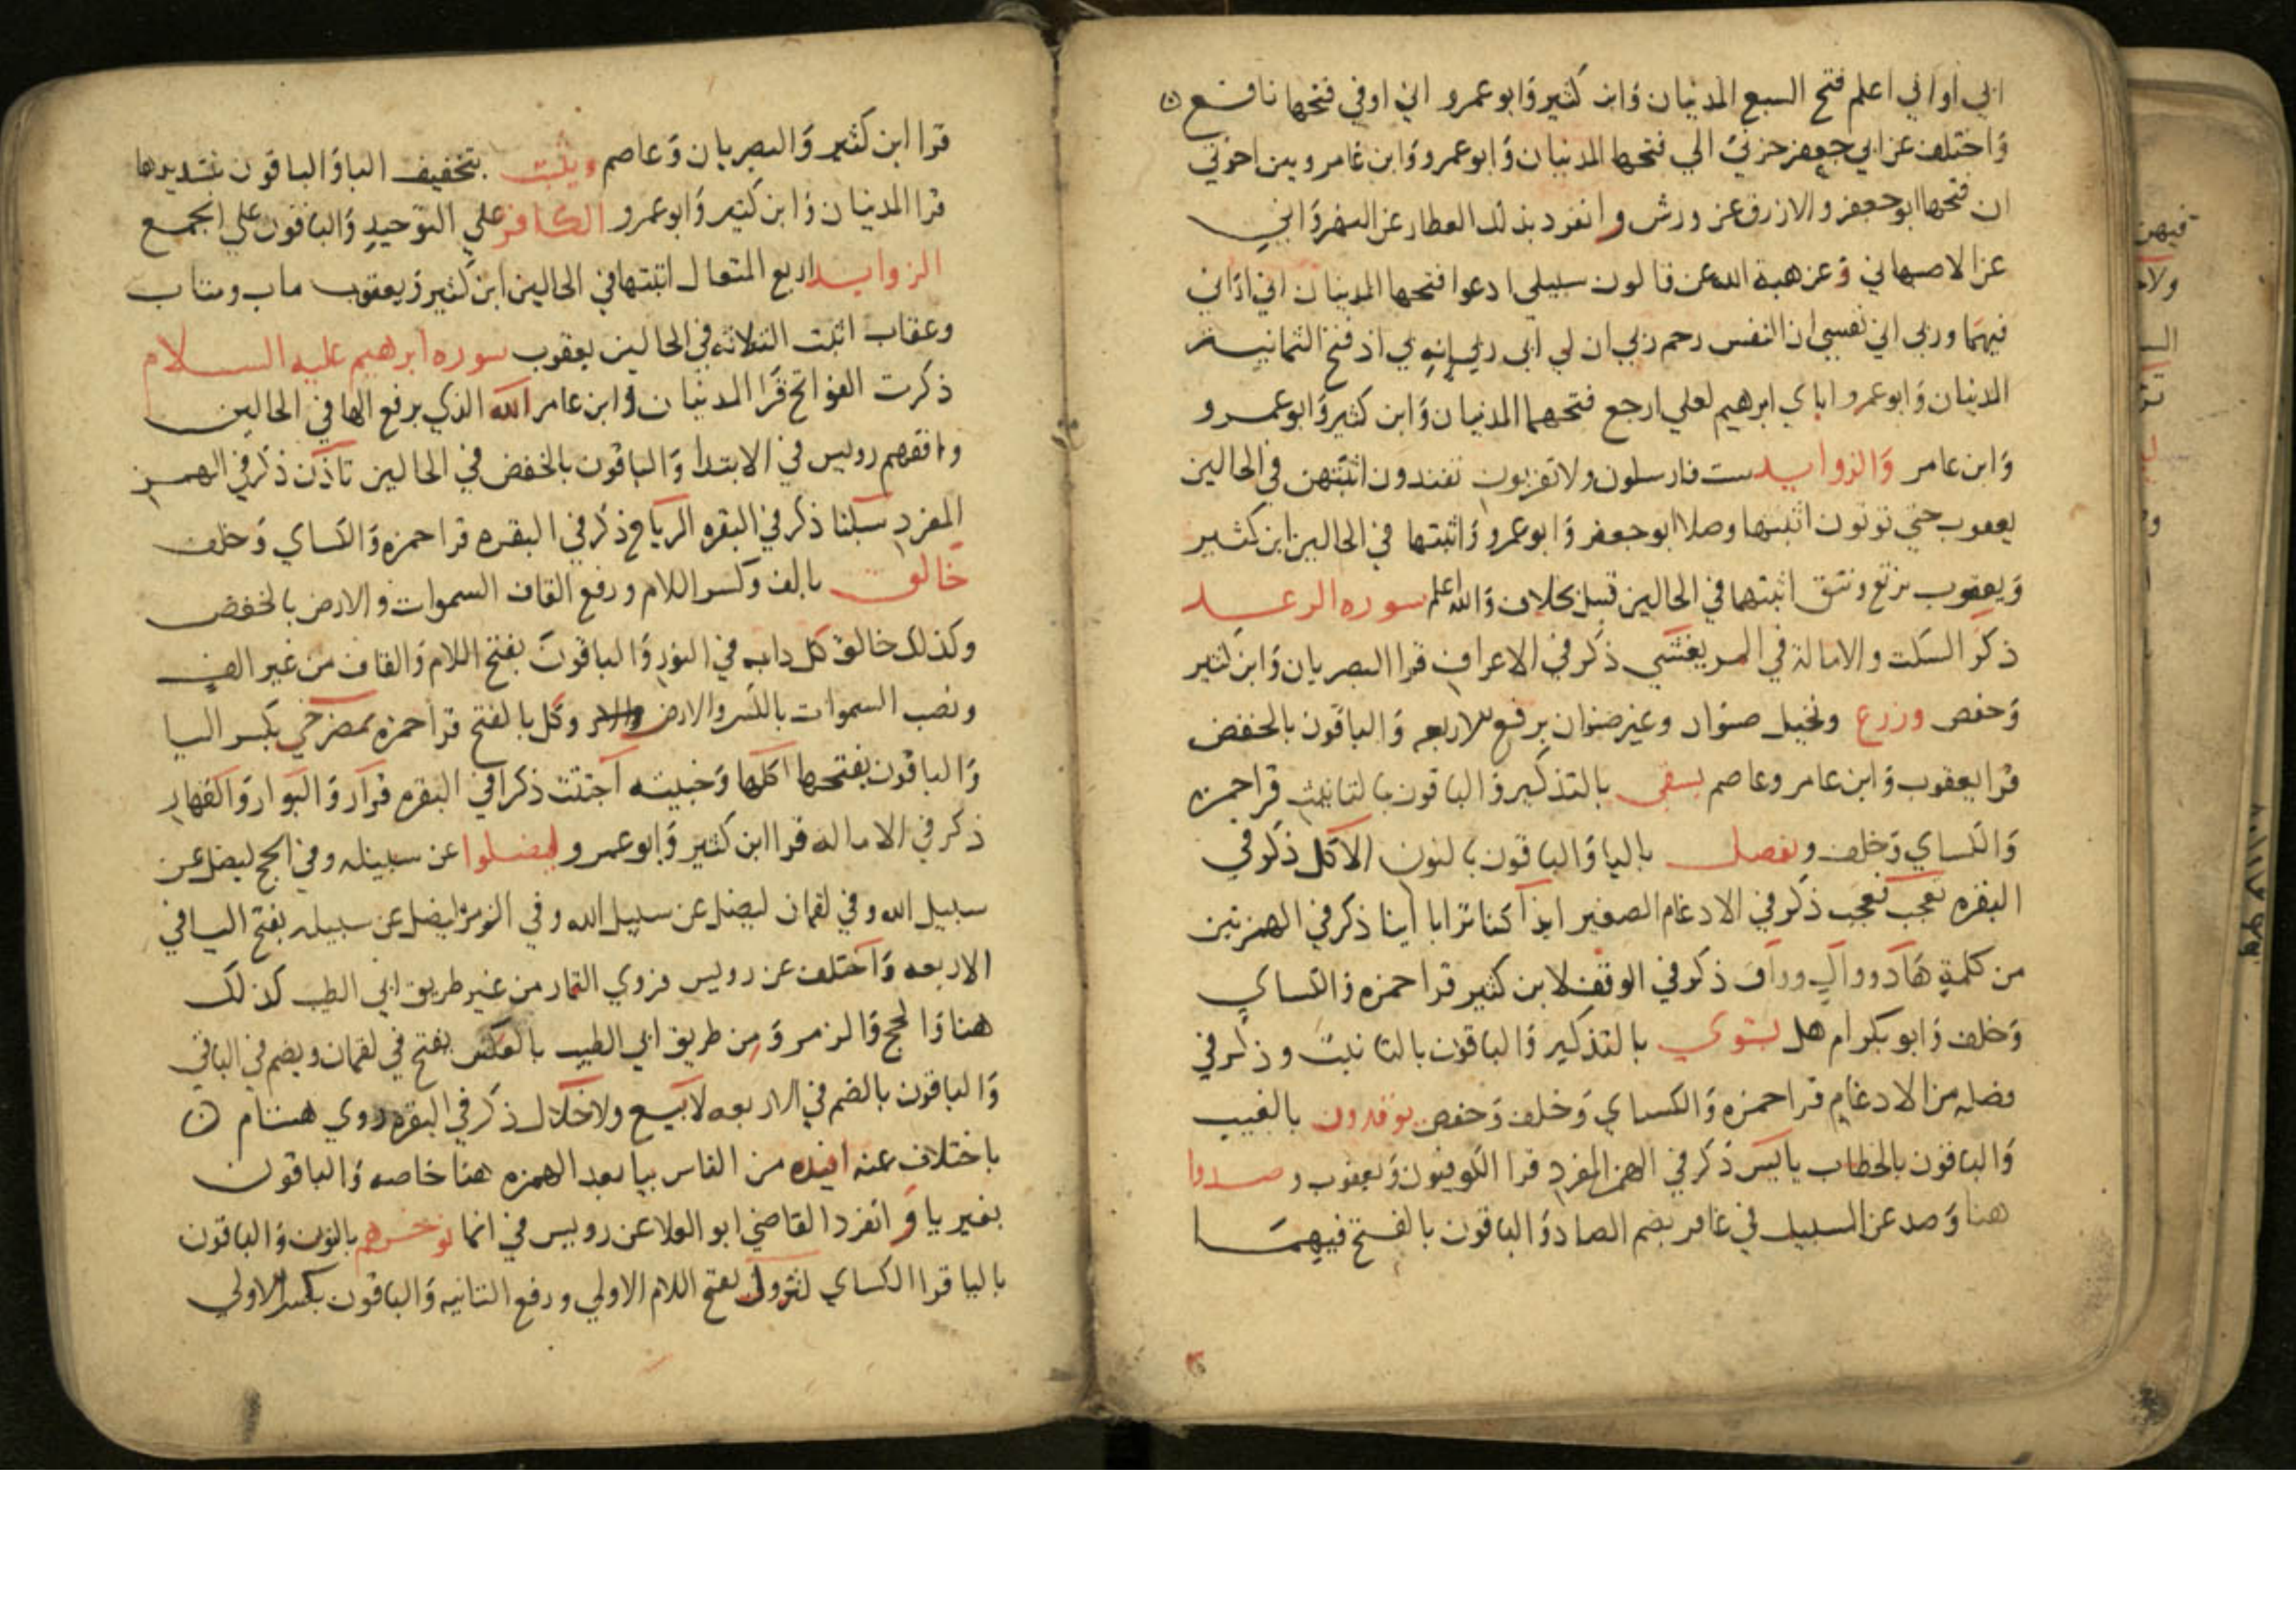 اني او اني اعلم فتح السبع المدنيان وابن كثير وابو عمرو اني اوفي فتحها نافع
واختلف عن ابي جعفر حزني الي فتحها المدنيان وابو عمرو وابن عامر وبين اخوتي
ان فتحها ابو جعفر والازرق عن ورش وانفرد بذلك العطار عن النهرواني
عن الاصبهاني وعن هبة الله عن قالون سبيلي ادعوا فتحها المدنيان اني اراني
فيهما وربي اني نفسي ان النفس رحم ربي ان لي ابي ربي انه بي اذ فتح الثمانية
المدنيان وابو عمرو اباي ابرهيم لعلي ارجع فتحهما المدنيان وابن كثير وابو عمرو
وابن عامر والزوايد ست فارسلون ولا تقربون تفندون اثبتهن في الحالين
يعقوب حتي توتون اثبتها وصلا ابو جعفر وابو عمرو واثبتها في الحالين ابن كثير
ويعقوب نرتع ونتق اثبتهما في الحالين قنبل بخلاف والله اعلم سوره الرعد
ذكر السكت والامالة في المر يغشي ذكر في الاعراف قرا البصريان وابن كثير
وحفص وزرع ونخيل صنوان وغير صنوان برفع الاربعه والباقون بالخفض
قرا يعقوب وابن عامر وعاصم يسقي بالتذكير والباقون بالتانيث قرا حمزه
والكساي وخلف ويفصل باليا والباقون بالنون الاكل ذكر في
البقره تعجب فعجب ذكر في الادغام الصغير ايذا كنا ترابا اينا ذكر في الهمزتين
من كلمة هاد ووال وواق ذكر في الوقف لابن كثير قرا حمزه والكساي
وخلف وابو بكر ام هل يستوي بالتذكير والباقون بالتانيث وذكر في
فصله من الادغام قرا حمزه والكساي وخلف وحفص يوقدون بالغيب
والباقون بالخطاب ياييس ذكر في الهمز المفرد قرا الكوفيون ويعقوب وصدوا
هنا وصد عن السبيل في غافر بضم الصاد والباقون بالفتح فيهما
قرا ابن كثير والبصريان وعاصم ويثبت بتخفيف البا والباقون بتشديدها
قرا المدنيان وابن كثير وابو عمرو الكافر علي التوحيد والباقون علي الجمع
الزوايد اربع المتعال اثبتها في الحالين ابن كثير ويعقوب ماب ومتاب
وعقاب اثبت الثلاثه في الحالين يعقوب سوره ابرهيم عليه السلام
ذكرت الفواتح قرا المدنيان وابن عامر الله الذي برفع الها في الحالين
وافقهم رويس في الابتدا والباقون بالخفض في الحالين تاذن ذكر في الهمز
المفرد سبلنا ذكر في البقره الرياح ذكر في البقره قرا حمزه والكساي وخلف
خالق بالف وكسر اللام ورفع القاف السموات والارض بالخفض
وكذلك خالق كل دابه في النور والباقون بفتح اللام والقاف من غير الف
ونصب السموات بالكسر والارض وكل بالفتح قرا حمزه بمصرخي بكسر اليا
والباقون بفتحها اكلها وخبيثه اجتثت ذكرا في البقره قرار والبوار والقهار
ذكر في الاماله قرا ابن كثير وابو عمرو ليضلوا عن سبيله وفي الحج ليضل عن
سبيل الله وفي لقمان ليضل عن سبيل الله وفي الزمر ليضل عن سبيله بفتح اليا في
الاربعه واختلف عن رويس فروي التمار من غير طريق ابي الطيب كذلك
هنا والحج والزمر ومن طريق ابي الطيب بالعكس بفتح في لقمان ويضم في الباقي
والباقون بالضم في الاربعه لا بيع ولا خلال ذكر في البقره روي هشام
باختلاف عنه افئده من الناس بيا بعد الهمزه هنا خاصه والباقون
بغير يا وانفرد القاضي ابو العلا عن رويس في انما نوخرهم بالنون والباقون
باليا قرا الكساي لتزول بفتح اللام الاولي ورفع الثانيه والباقون بكسر الاولي